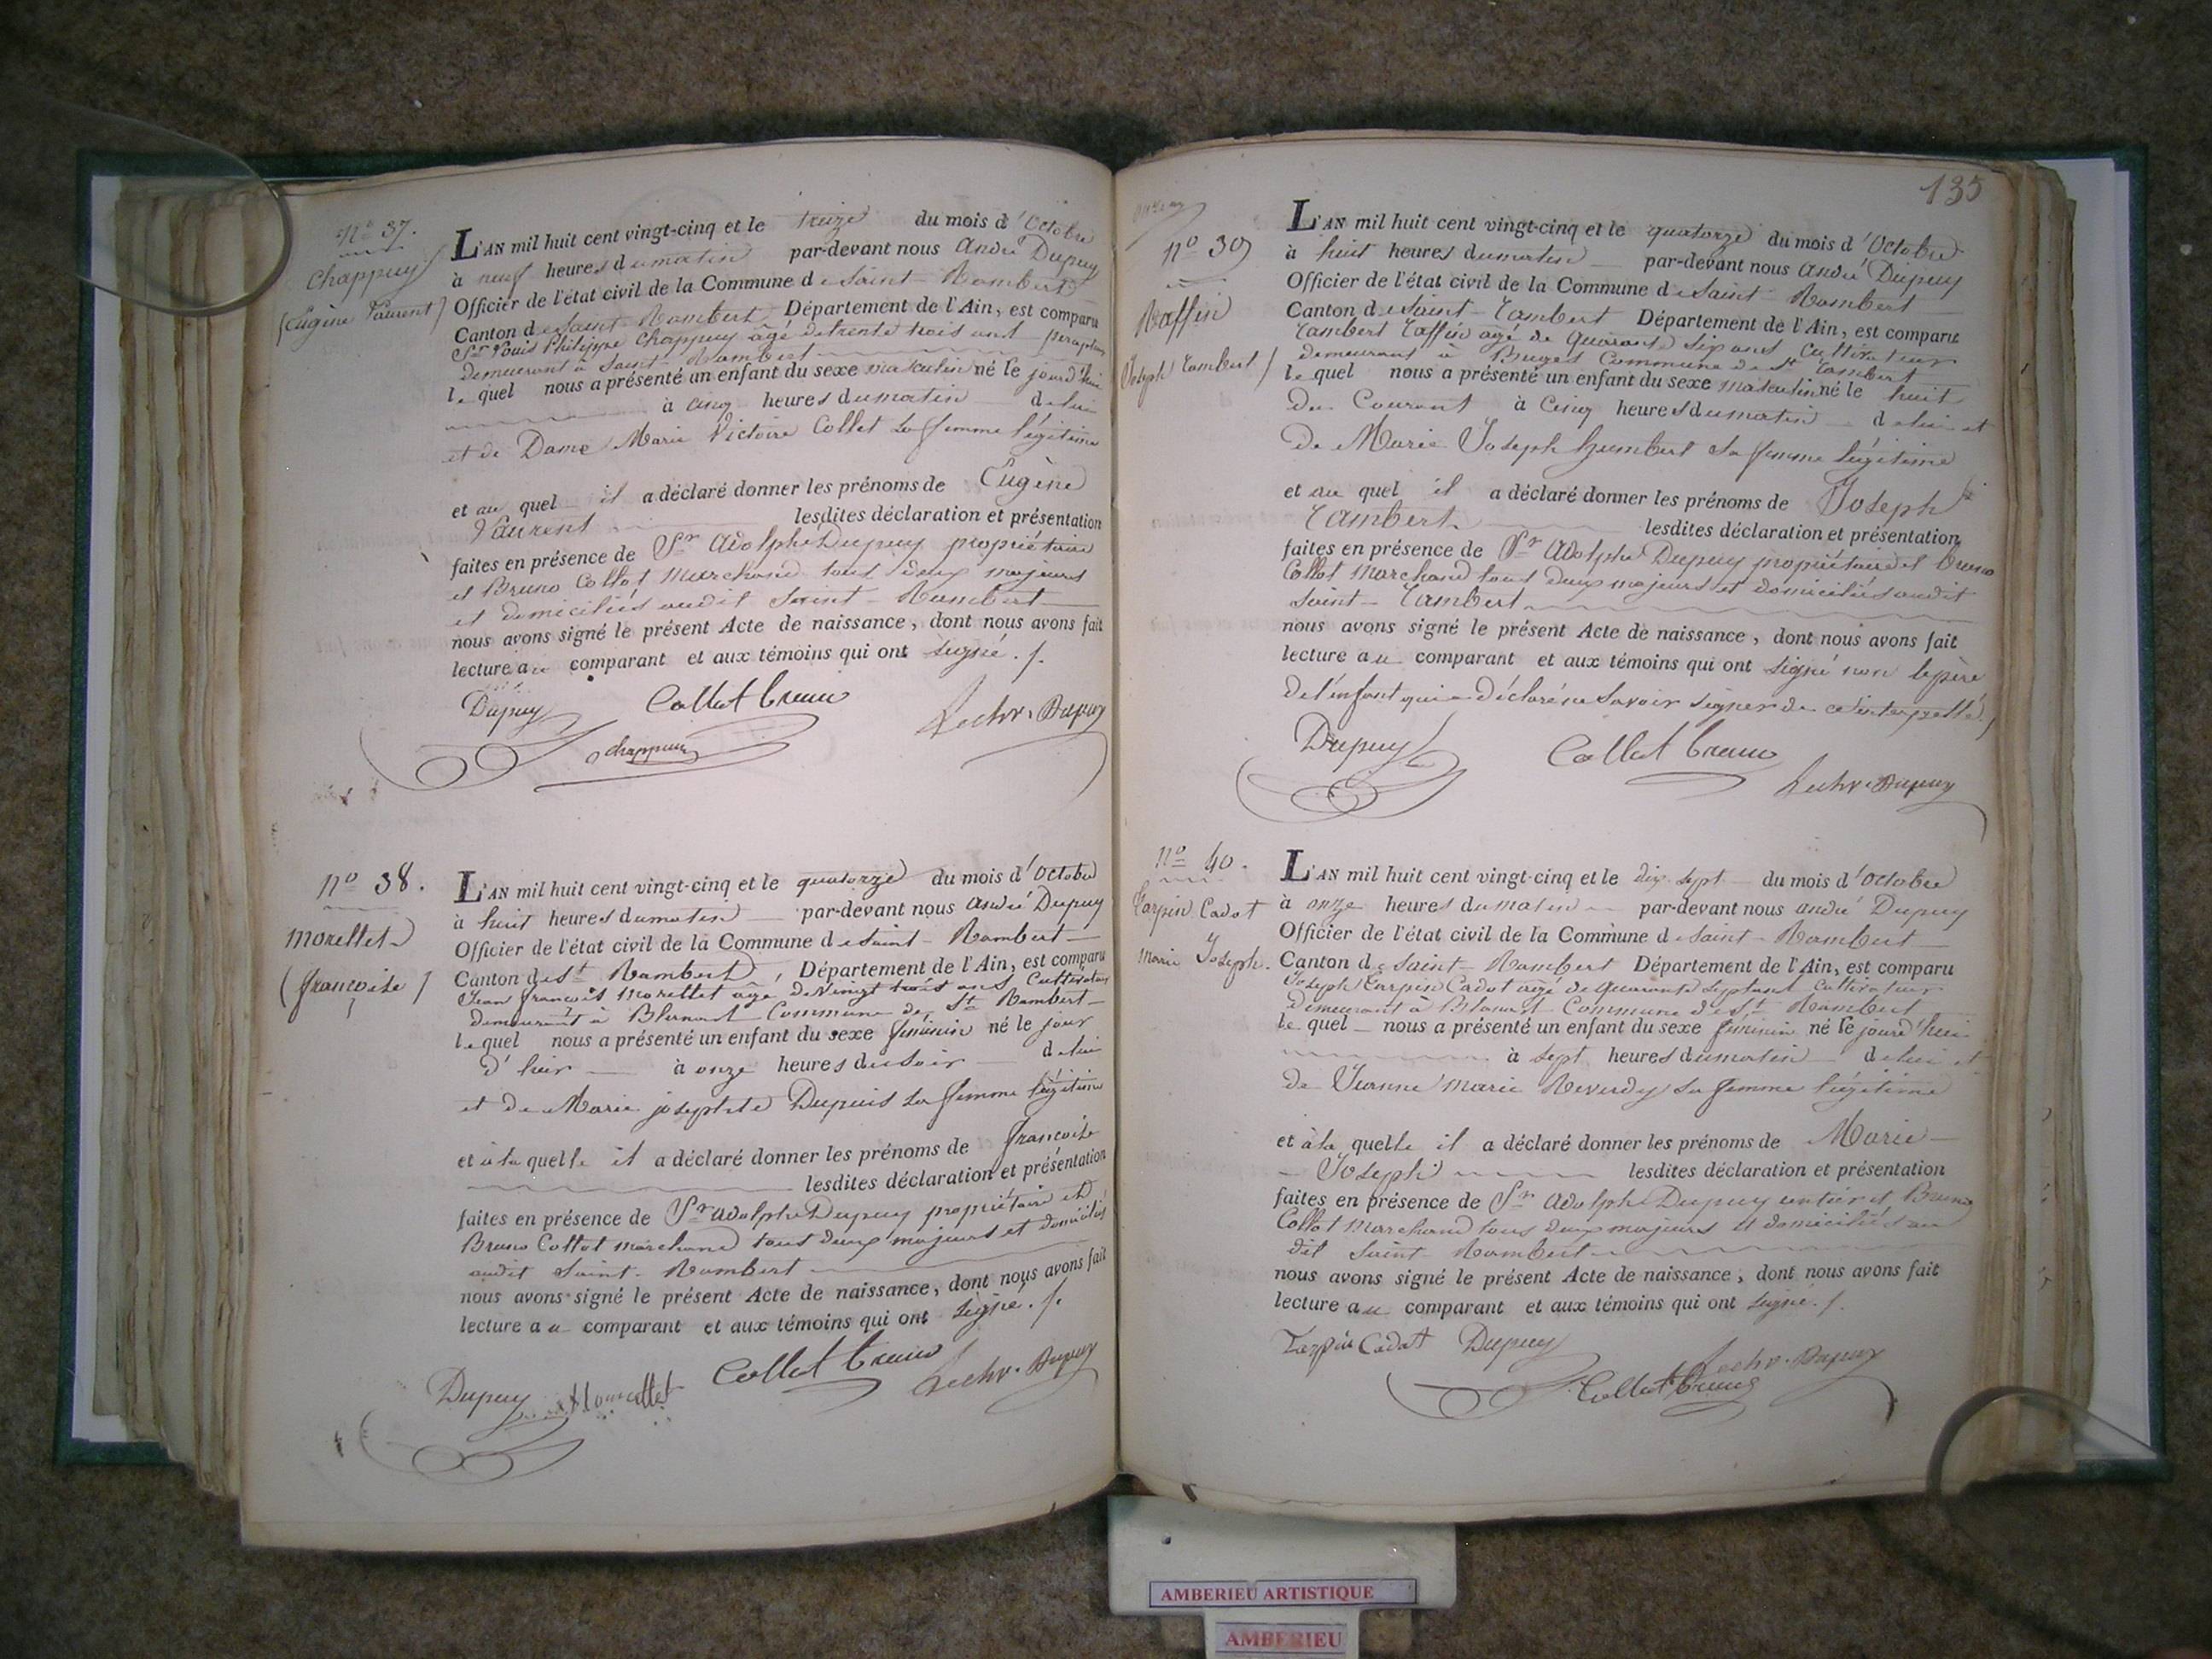 nº 37.
Chappuy
(Eugène Laurent)
L'AN mil huit cent vingt-cinq et le treize du mois d'Octobre
à neuf heures du matin par-devant nous André Dupuy
Officier de l'état civil de la Commune de Saint-Rambert
Canton de Saint-Rambert, Département de l'Ain, est comparu
Sr Louis Philippe Chappuy âgé de trente trois ans
demeurant à Saint Rambert
lequel nous a présenté un enfant du sexe masculin né le jourd'hui
à cinq heures du matin de lui
et de Dame Marie Victoire Collet sa femme légitime
et au quel il a déclaré donner les prénoms de Eugène
Laurent lesdites déclaration et présentation
faites en présence de Sr Adolphe Dupuy propriétaire
et Bruno Collot Marchand tous deux majeurs
et domiciliés audit Saint-Rambert
nous avons signé le présent Acte de naissance, dont nous avons fait
lecture au comparant et aux témoins qui ont signé ./.
Dupuy Collot Bruno Dupuy
Chappuy
nº 38.
Morellet
(françoise)
L'AN mil huit cent vingt-cinq et le quatorze du mois d'Octobre
à huit heures du matin par-devant nous André Dupuy
Officier de l'état civil de la Commune de Saint-Rambert
Canton de St Rambert, Département de l'Ain, est comparu
Jean françois Morellet âgé de Vingt trois ans Cultivateur
demeurant à Blanaz Commune de St Rambert
lequel nous a présenté un enfant du sexe féminin né le jour
d'hier à onze heures du soir de lui
et de Marie josephte Dupuis sa femme légitime
et à la quelle il a déclaré donner les prénoms de françoise
lesdites déclaration et présentation
faites en présence de Sr Adolphe Dupuy propriétaire et
Bruno Collot marchand tous deux majeurs et domiciliés
audit Saint-Rambert
nous avons signé le présent Acte de naissance, dont nous avons fait
lecture au comparant et aux témoins qui ont signé ./.
Dupuy Mourellet Collot Bruno Dupuy
135
nº 39
Raffin
Joseph Rambert)
L'AN mil huit cent vingt-cinq et le quatorze du mois d'Octobre
à huit heures du matin par-devant nous André Dupuy
Officier de l'état civil de la Commune de Saint-Rambert
Canton de Saint-Rambert Département de l'Ain, est comparu
Rambert Raffin agé de Quarante six ans Cultivateur
demeurant à Buges Commune de St Rambert
lequel nous a présenté un enfant du sexe masculin né le huit
du Courant à Cinq heures du matin de lui et
de Marie Joseph humbert sa femme légitime
et au quel il a déclaré donner les prénoms de Joseph
Rambert lesdites déclaration et présentation
faites en présence de Sr Adolphe Dupuy propriétaire et Bruno
Collot Marchand tous deux majeurs et domiciliés audit
Saint-Rambert
nous avons signé le présent Acte de naissance, dont nous avons fait
lecture au comparant et aux témoins qui ont signé non le père
de l'enfant qui a déclaré ne savoir signer de ce interpellé
Dupuy Collot Bruno Dupuy
nº 40.
Carpin Cadot
Marie Joseph.
L'AN mil huit cent vingt-cinq et le dix sept du mois d'Octobre
à onze heures du matin par-devant nous andré Dupuy
Officier de l'état civil de la Commune de Saint-Rambert
Canton de Saint-Rambert Département de l'Ain, est comparu
Joseph Carpin Cadot agé de quarante sept ans Cultivateur
demeurant à Blanaz Commune de St Rambert
lequel nous a présenté un enfant du sexe féminin né le jourd'hui
à sept heures du matin de lui et
de Jeanne Marie Reverdy sa femme légitime
et à la quelle il a déclaré donner les prénoms de Marie
Joseph lesdites déclaration et présentation
faites en présence de Sr Adolphe Dupuy rentier et Bruno
Collot Marchand tous deux majeurs et domiciliés au
dit Saint-Rambert
nous avons signé le présent Acte de naissance, dont nous avons fait
lecture au comparant et aux témoins qui ont signé ./.
Carpin Cadot Dupuy
Collot Bruno Dupuy
AMBERIEU ARTISTIQUE
AMBERIEU